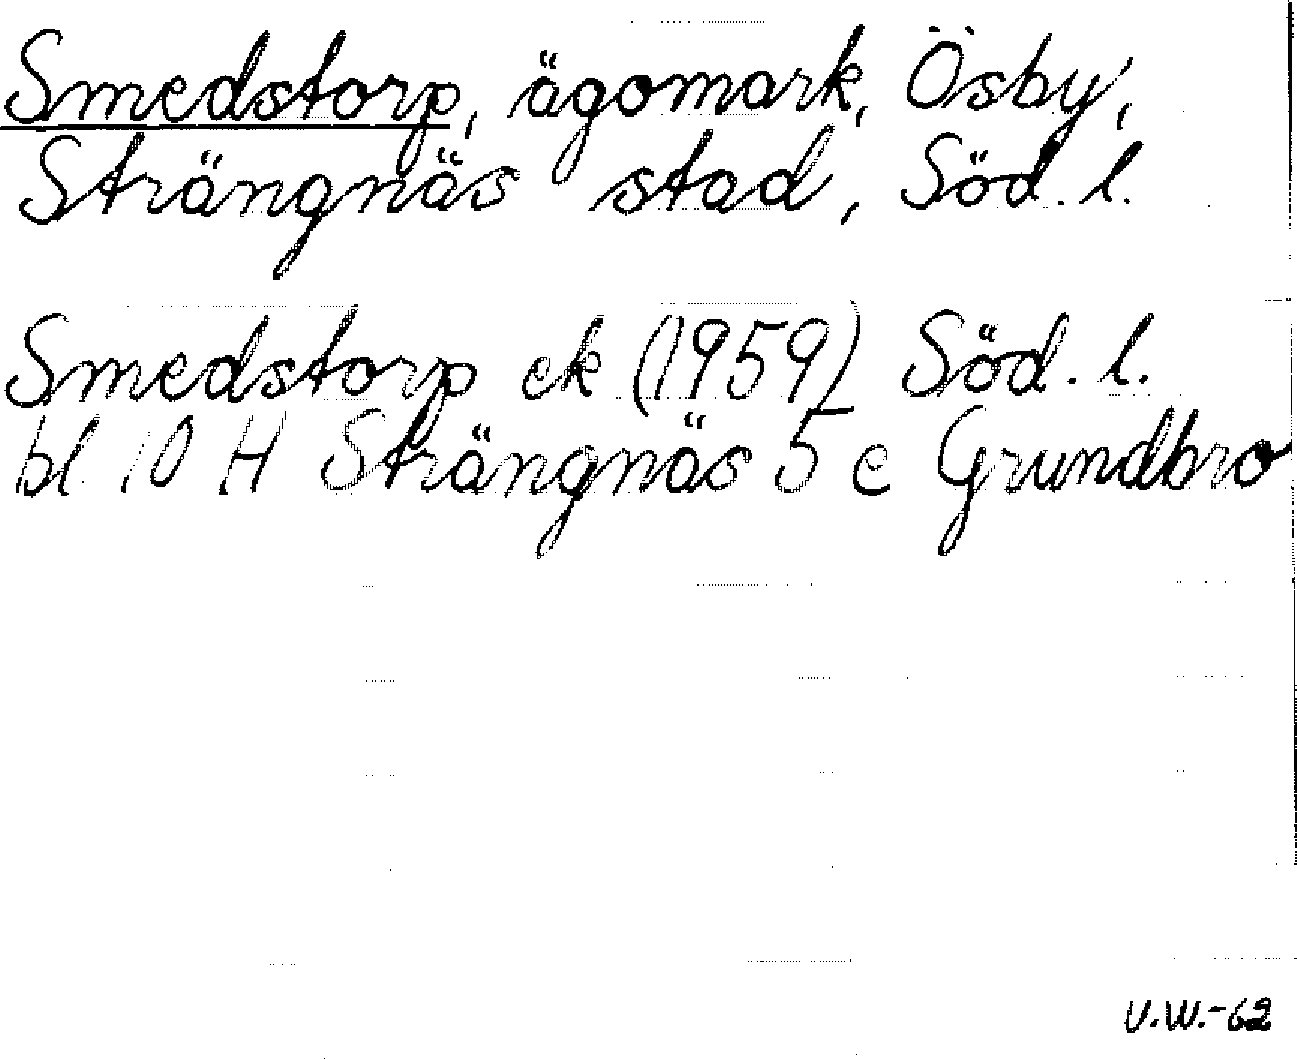 Smedstorp, ägomark, Ösby,
Strängnäs stad, Söd. l.
Smedstorp ek (1959) Söd. l.
bl 10 H Strängnäs 5 e Grundbro
V.W.-62